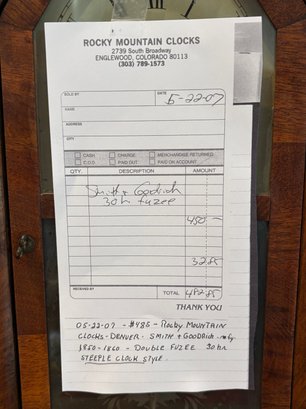 ROCKY MOUNTAIN CLOCKS
2739 South Broadway
ENGLEWOOD, COLORADO 80113
(303) 789-1573
SOLD BY DATE 5-22-07
NAME
ADDRESS
CITY
CASH CHARGE MERCHANDISE RETURNED
C.O.D. PAID OUT PAID ON ACCOUNT
QTY. DESCRIPTION AMOUNT
Smith + Goodrich
30 hr fuzee
450 —
32.85
RECEIVED BY TOTAL 482.85
THANK YOU
05-22-07 - $485 - ROCKY MOUNTAIN
CLOCKS - DENVER - SMITH + GOODRICH - mfg.
1850-1860 - DOUBLE FUZEE 30 hr
STEEPLE CLOCK STYLE.